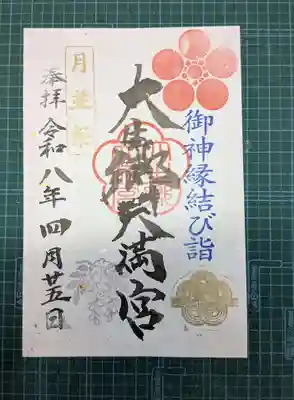 御神縁結び詣
大生郷天満宮
月並祭
奉拝 令和八年 四月廿五日